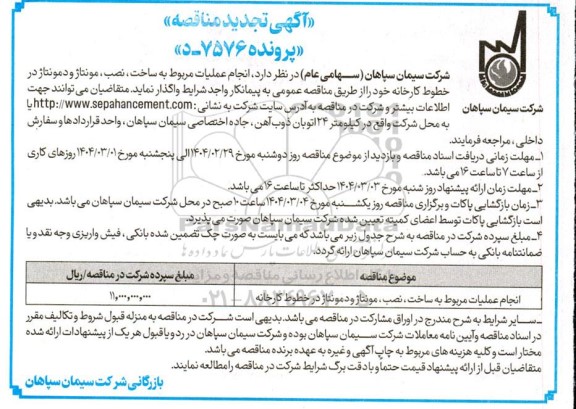 «آگهی تجدید مناقصه»
«پرونده ۷۵۷۶-د»
شرکت سیمان سپاهان
شرکت سیمان سپاهان (سهامی عام) در نظر دارد، انجام عملیات مربوط به ساخت، نصب، مونتاژ و دمونتاژ در
خطوط کارخانه خود را از طریق مناقصه عمومی به پیمانکار واجد شرایط واگذار نماید. متقاضیان می توانند جهت
اطلاعات بیشتر و شرکت در مناقصه به آدرس سایت شرکت به نشانی: http://www.sepahancement.com یا
به محل شرکت واقع در کیلومتر ۲۴ اتوبان ذوب آهن، جاده اختصاصی سیمان سپاهان، واحد قراردادها و سفارش
داخلی، مراجعه فرمایند.
۱-مهلت زمانی دریافت اسناد مناقصه و بازدید از موضوع مناقصه روز دوشنبه مورخ ۱۴۰۴/۰۲/۲۹ الی پنجشنبه مورخ ۱۴۰۴/۰۳/۰۱ روزهای کاری
از ساعت ۷ تا ساعت ۱۶ می باشد.
۲-مهلت زمان ارائه پیشنهاد روز شنبه مورخ ۱۴۰۴/۰۳/۰۳ حداکثر تا ساعت ۱۶ می باشد.
۳-زمان بازگشایی پاکات و برگزاری مناقصه روز یکشنبه مورخ ۱۴۰۴/۰۳/۰۴ ساعت ۱۰ صبح در محل شرکت سیمان سپاهان می باشد. بدیهی
است بازگشایی پاکات توسط اعضای کمیته تعیین شده شرکت سیمان سپاهان صورت می پذیرد.
۴-مبلغ سپرده شرکت در مناقصه به شرح جدول زیر می باشد که می بایست به صورت چک تضمین شده بانکی، فیش واریزی وجه نقد و یا
ضمانتنامه بانکی به حساب شرکت سیمان سپاهان ارائه گردد.
موضوع مناقصه مبلغ سپرده شرکت در مناقصه/ریال
انجام عملیات مربوط به ساخت، نصب، مونتاژ و دمونتاژ در خطوط کارخانه ۱۱,۰۰۰,۰۰۰,۰۰۰
-سایر شرایط به شرح مندرج در اوراق مشارکت در مناقصه می باشد. بدیهی است شرکت در مناقصه به منزله قبول شروط و تکالیف مقرر
در اسناد مناقصه و آیین نامه معاملات شرکت سیمان سپاهان بوده و شرکت سیمان سپاهان در رد و یا قبول هر یک از پیشنهادات ارائه شده
مختار است و کلیه هزینه های مربوط به چاپ آگهی و غیره به عهده برنده مناقصه می باشد.
متقاضیان قبل از ارائه پیشنهاد قیمت حتما و با دقت برگ شرایط شرکت در مناقصه را مطالعه نمایند.
بازرگانی شرکت سیمان سپاهان